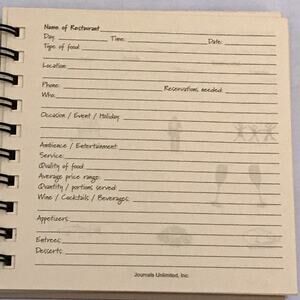 Name of Restaurant
Day Time: Date:
Type of food:
Location:
Phone: Reservations needed:
Who:
Occasion / Event / Holiday
Ambience / Entertainment:
Service:
Quality of food
Average price range:
Quantity / portions served:
Wine / Cocktails / Beverages:
Appetizers:
Entrees:
Desserts:
Journals Unlimited, Inc.